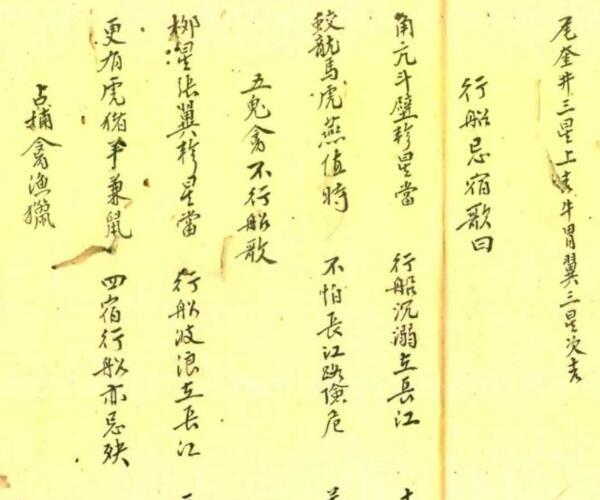 尾奎井三星上吉牛胃翼三星次吉
行船忌宿歌曰
角亢斗壁軫星當 行船沉溺立長江
鮫龍馬虎燕值時 不怕長江路險危
五鬼禽不行船歌
柳星張翼軫星當 行船波浪立長江
更有虎猪羊兼鼠 四宿行船亦忌殃
占捕禽漁獵